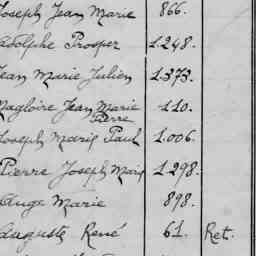 Joseph Jean Marie 866.
Adolphe Prosper 1.248.
Jean Marie Julien 1.373.
Magloire Jean Marie 110.
Pierre
Joseph Marie Paul 1.006.
Pierre Joseph Marie 1.298.
Ange Marie 898.
Auguste René 61. Ret.